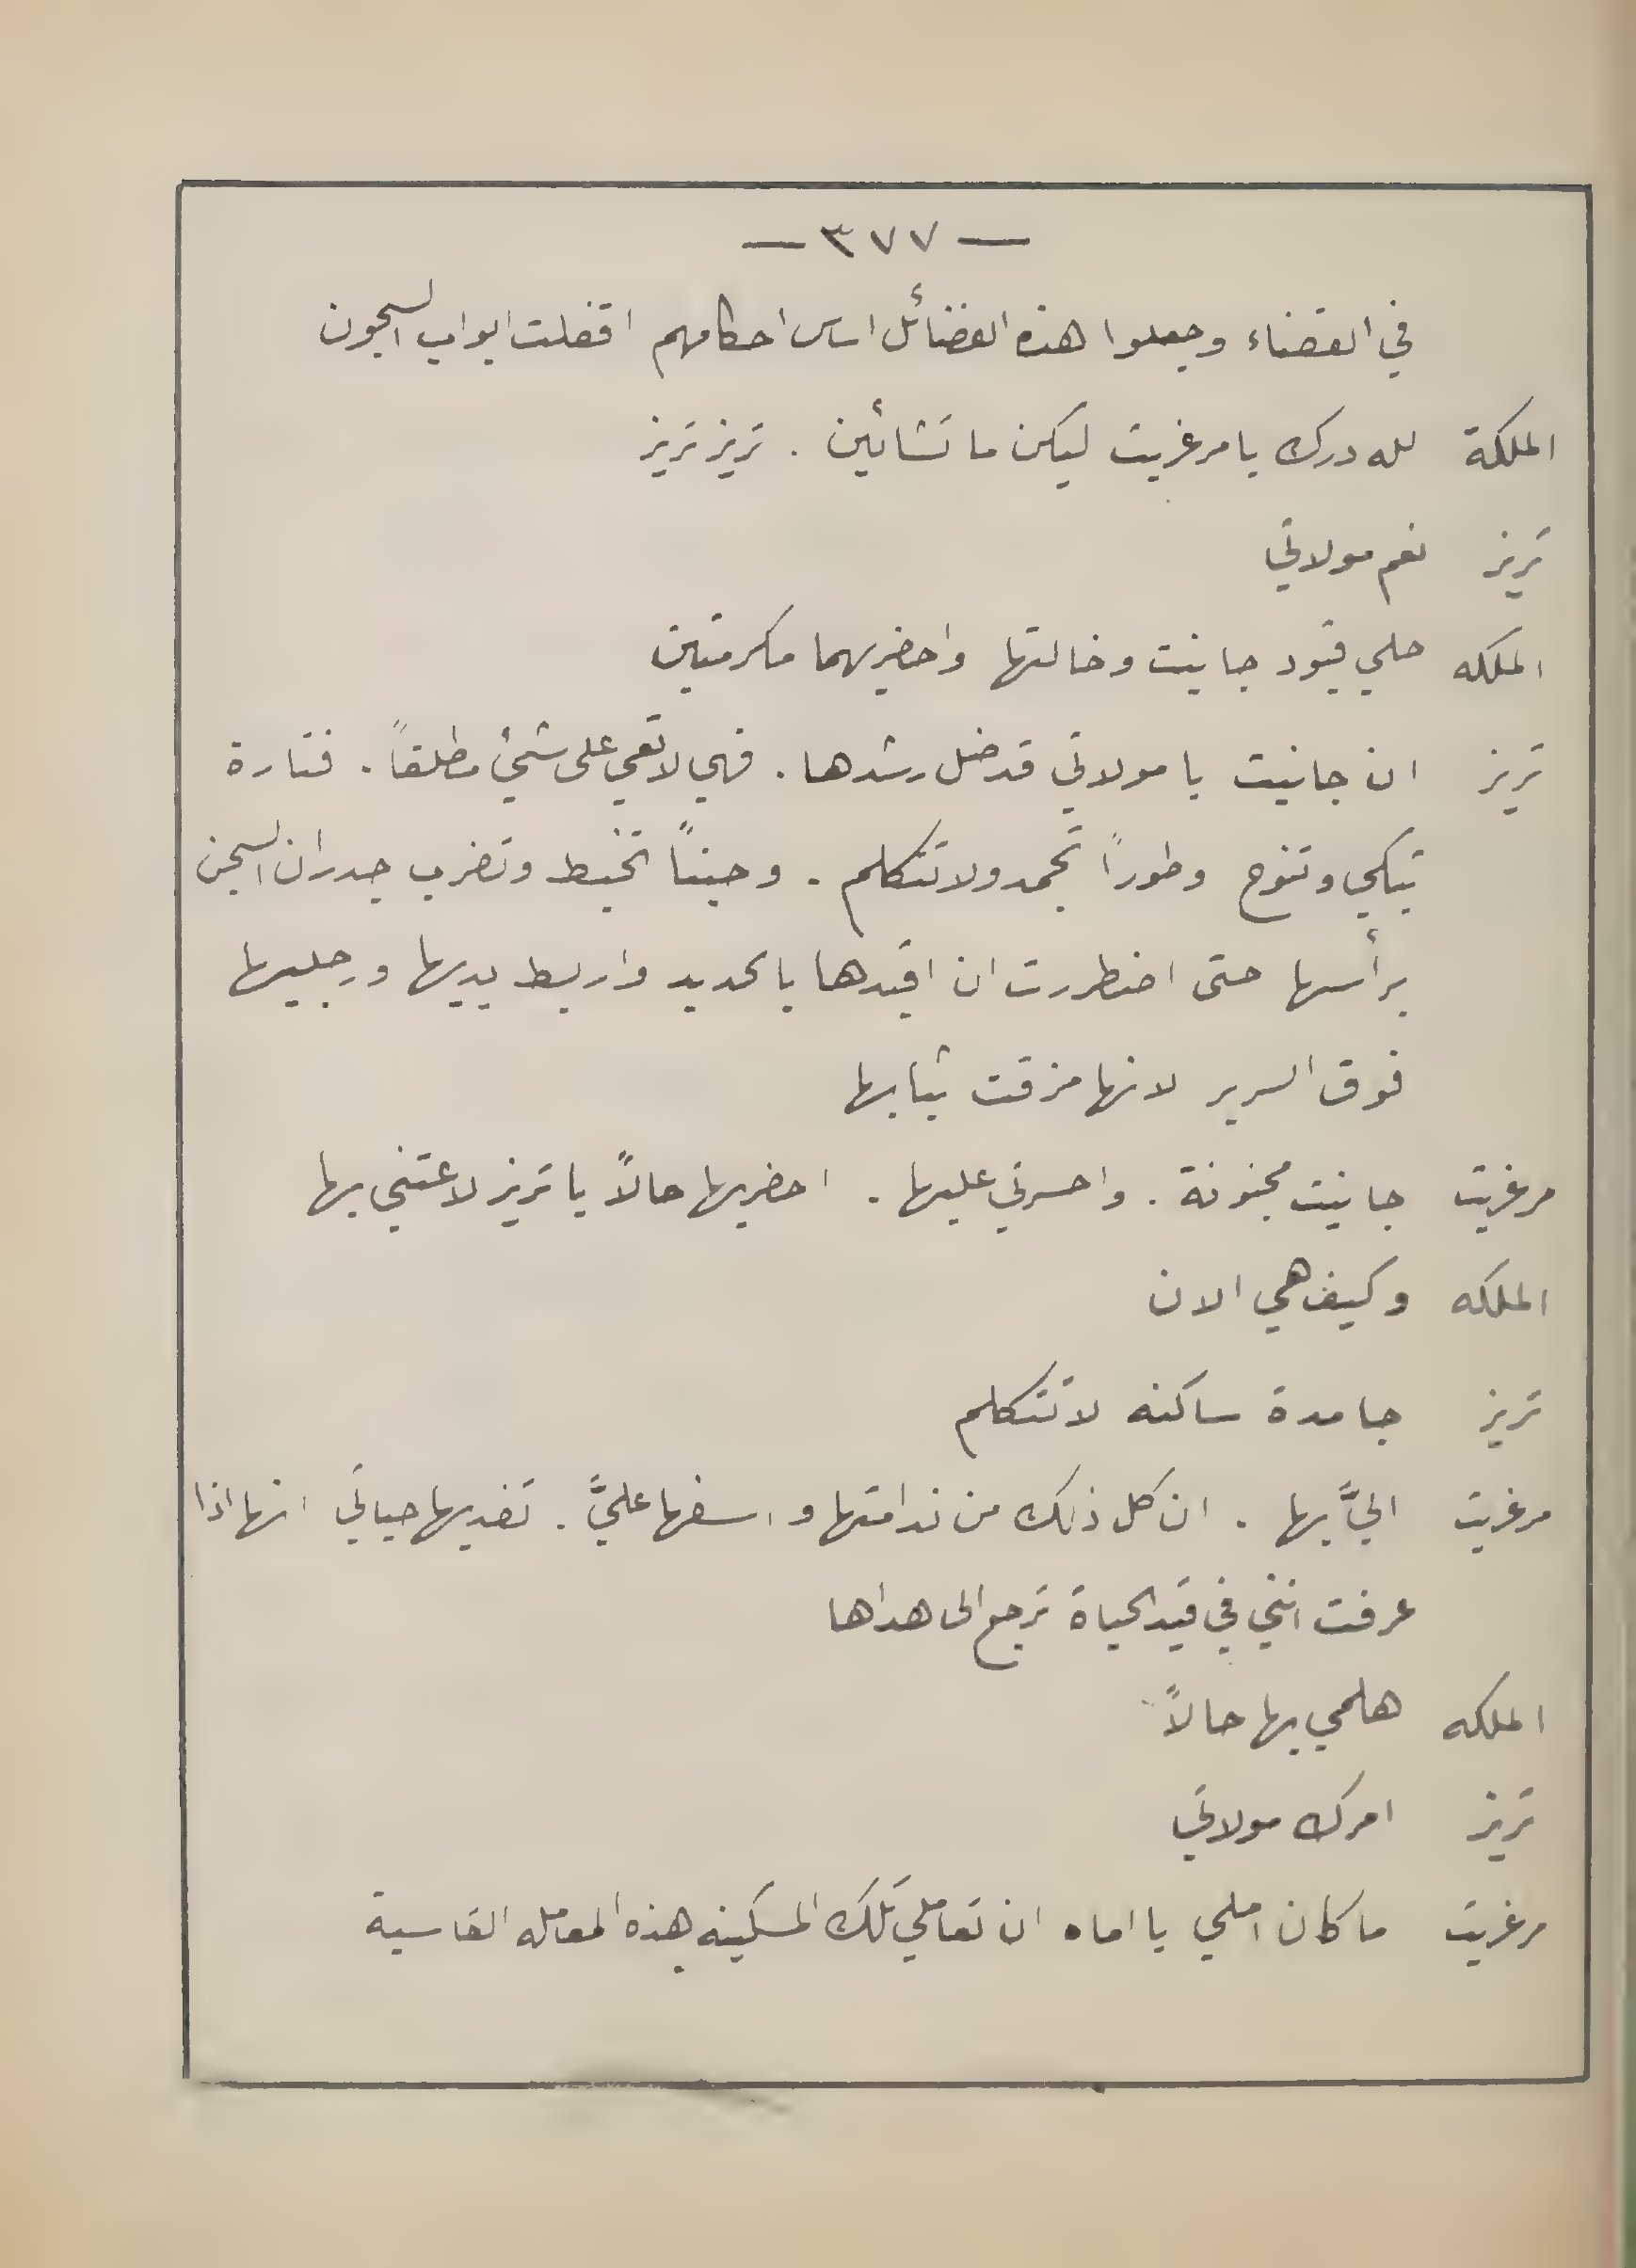 — ٣٧٧ —
في القضاء وجعلوا هذه الفضائل اساس احكامهم اقفلت ابواب السجون
الملكة لله درك يا مرغريت ليكن ما تشائين . تريز تريز
تريز نعم مولاتي
الملكه حلي قيود جانيت وخالتها واحضريهما مكرمتين
تريز ان جانيت يا مولاتي قد ضل رشدها . فهي لا تعي على شيء مطلقاً . فتارة
تبكي وتنوح وطوراً تجمد ولا تتكلم . وحيناً تخبط وتضرب جدران السجن
برأسها حتى اضطررت ان اقيدها بالحديد واربط يديها ورجليها
فوق السرير لانها مزقت ثيابها
مرغريت جانيت مجنونة . واحسرتي عليها . احضريها حالاً يا تريز لاعتني بها
الملكه وكيف هي الان
تريز جامدة ساكنه لا تتكلم
مرغريت اليَّ بها . ان كل ذلك من ندامتها واسفها عليَّ . تفديها حياتي انها اذا
عرفت انني في قيد الحياة ترجع الى هداها
الملكه هلمي بها حالاً
تريز امرك مولاتي
مرغريت ما كان املي يا اماه ان تعاملي تلك المسكينه بهذه المعامله القاسية